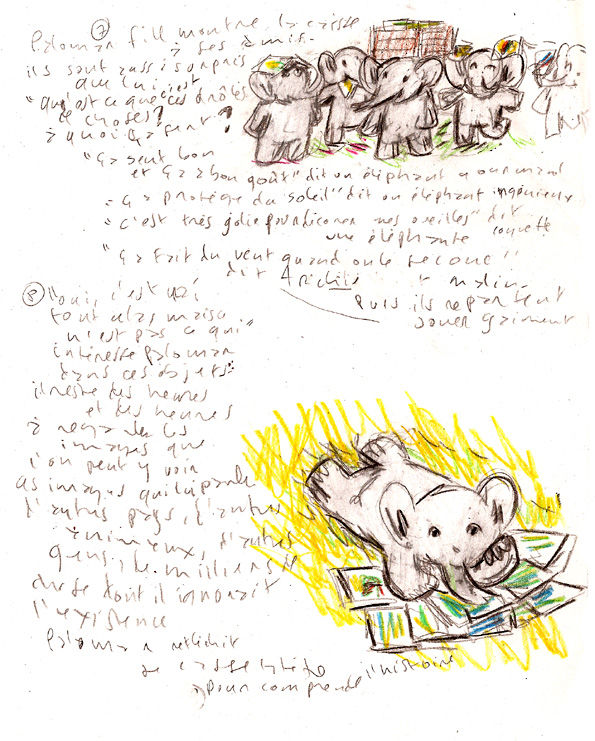 7
Paloman fill montre la caisse
à ses amis.
ils sont aussi surpris
que lui c'est
"qu'est ce que ces drôles
de choses?
à quoi ça sert?
"ça sent bon
et ça a bon goût" dit un éléphant gourmand
"ça protège du soleil" dit un éléphant ingénieux
"c'est très jolie pour décorer mes oreilles" dit
une éléphante coquette
"ça fait du vent quand on le secoue"
dit malin.
Puis ils repartent
jouer gaiment
8
"oui, c'est vrai
tout cela, mais
n'est pas ce qui"
intéresse Paloman
dans ces objets:
il reste des heures
et des heures
à regarder les
images que
l'on peut y voir
ces images qui lui parle
d'autres pays, d'autres
animaux, d'autres
gens, de milliers de
chose dont il ignorait
l'existence
Paloman réfléchit
se casse tête
pour comprendre l'histoire